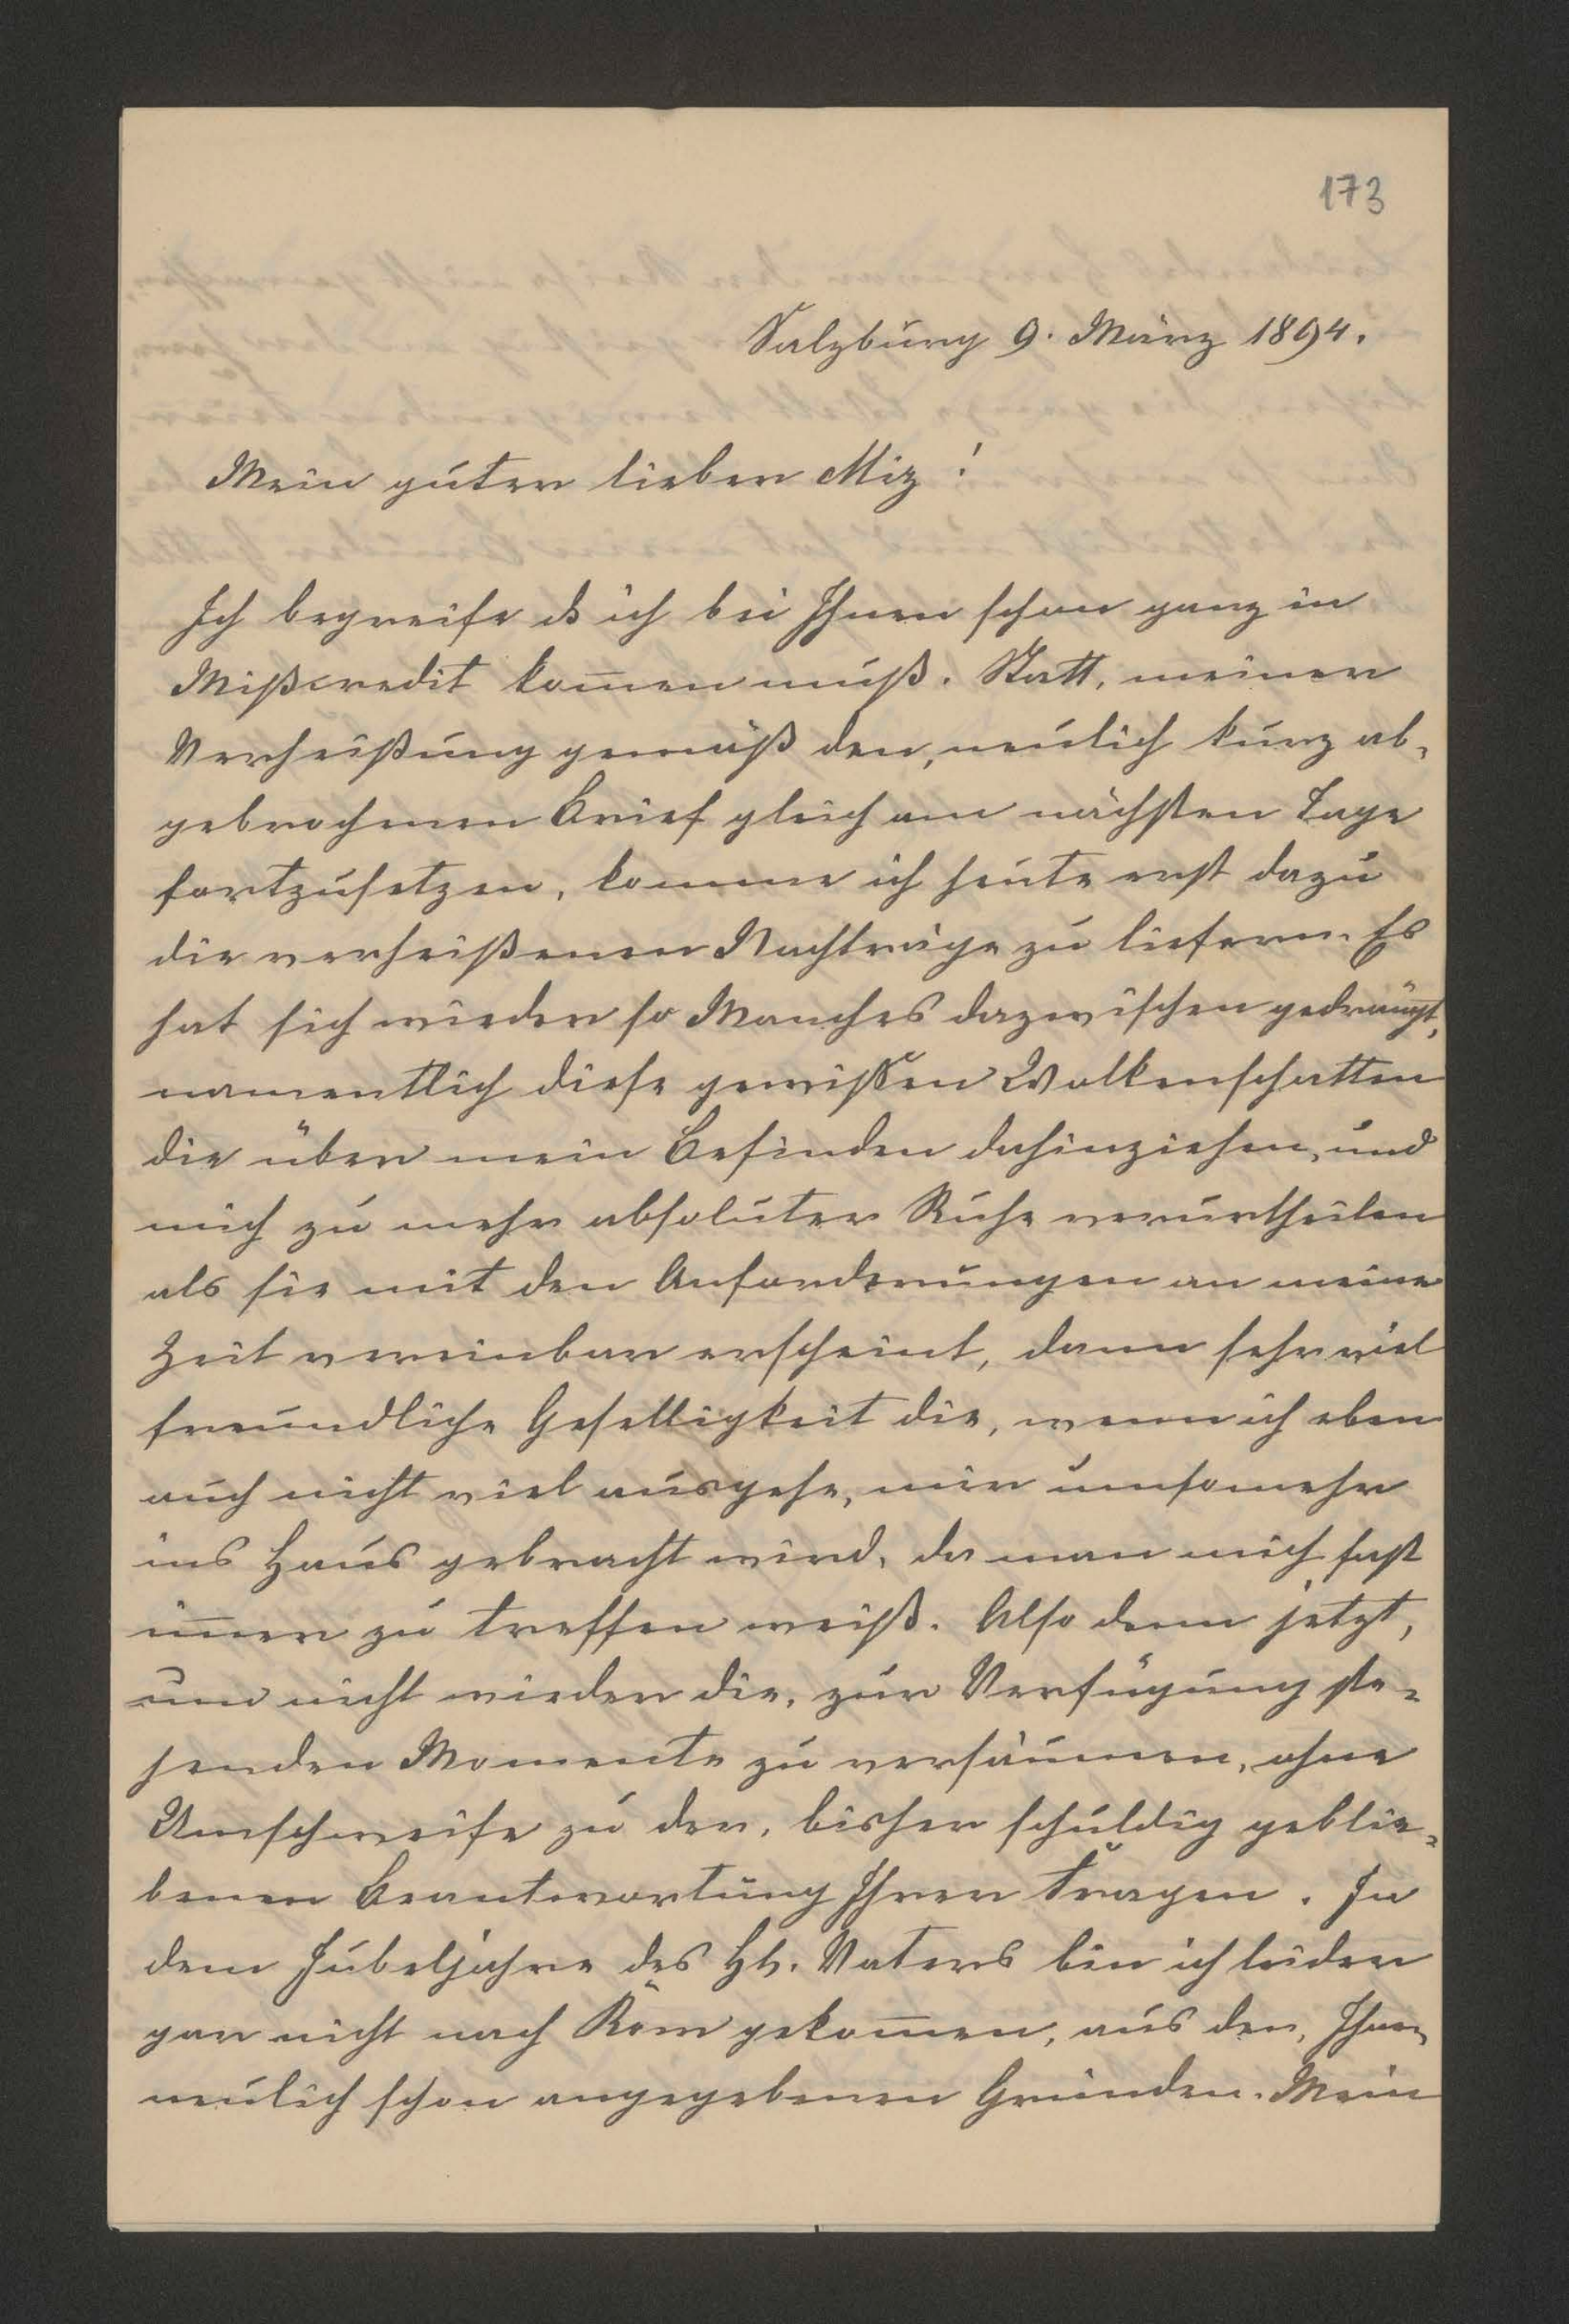 173
Salzburg 9. März 1894.
Mein guter lieber Miz!
Ich begreife ds ich bei Ihnen schon ganz in
Mißcredit kom̅en muß. Statt, meiner
Verheißung gemäß den, neulich kurz ab-
gebrochenen Brief gleich am nächsten Tage
fortzusetzen, komme ich heute erst dazu
die verheißenen Nachträge zu liefern. Es
hat sich wieder so Manches dazwischen gedrängt,
namentlich diese gewissen Wolkenschatten
die über mein Befinden dahinziehen, und
mich zu mehr absoluter Ruhe verurtheilen
als sie mit den Anforderungen an meine
Zeit vereinbar erscheint, dann sehr viel
freundliche Geselligkeit die, wenn ich eben
auch nicht viel ausgehe, mir umsomehr
ins Haus gebracht wird, da man mich fast
im̅er zu treffen weiß. Also denn jetzt,
um nicht wieder die, zur Verfügung ste-
henden Momente zu versäumen, ohne
Umschweife zu der, bisher schuldig geblie-
benen Beantwortung Ihrer Fragen. In
dem Jubeljahre des Hl. Vaters bin ich leider
gar nicht nach Rom gekom̅en, aus den, Ihnen
neulich schon angegebenen Gründen. Mein